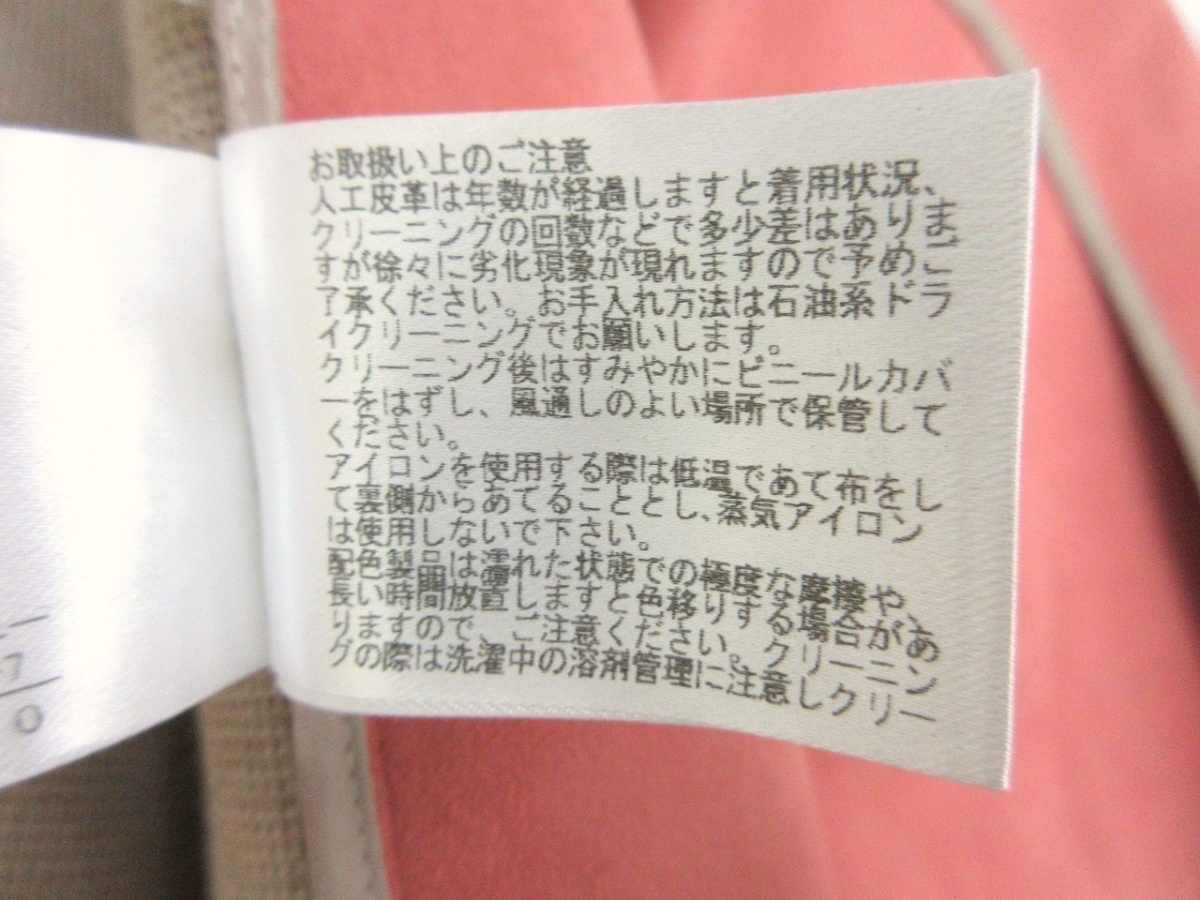 お取扱い上のご注意
人工皮革は年数が経過しますと着用状況、
クリーニングの回数などで多少差はありま
すが徐々に劣化現象が現れますので予めご
了承ください。お手入れ方法は石油系ドラ
イクリーニングでお願いします。
クリーニング後はすみやかにビニールカバ
ーをはずし、風通しのよい場所で保管して
ください。
アイロンを使用する際は低温であて布をし
て裏側からあてることとし、蒸気アイロン
は使用しないで下さい。
配色製品は濡れた状態での極度な摩擦や、
長い時間放置しますと色移りする場合があ
りますので、ご注意ください。クリーニン
グの際は洗濯中の溶剤管理に注意しクリー